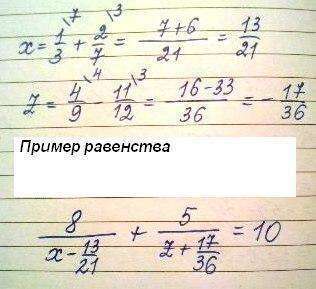 x = 1/3 \7 + 2/7 \3 = (7+6)/21 = 13/21
z = 4/9 \4 - 11/12 \3 = (16-33)/36 = -17/36
Пример равенства
8/(x - 13/21) + 5/(z + 17/36) = 10